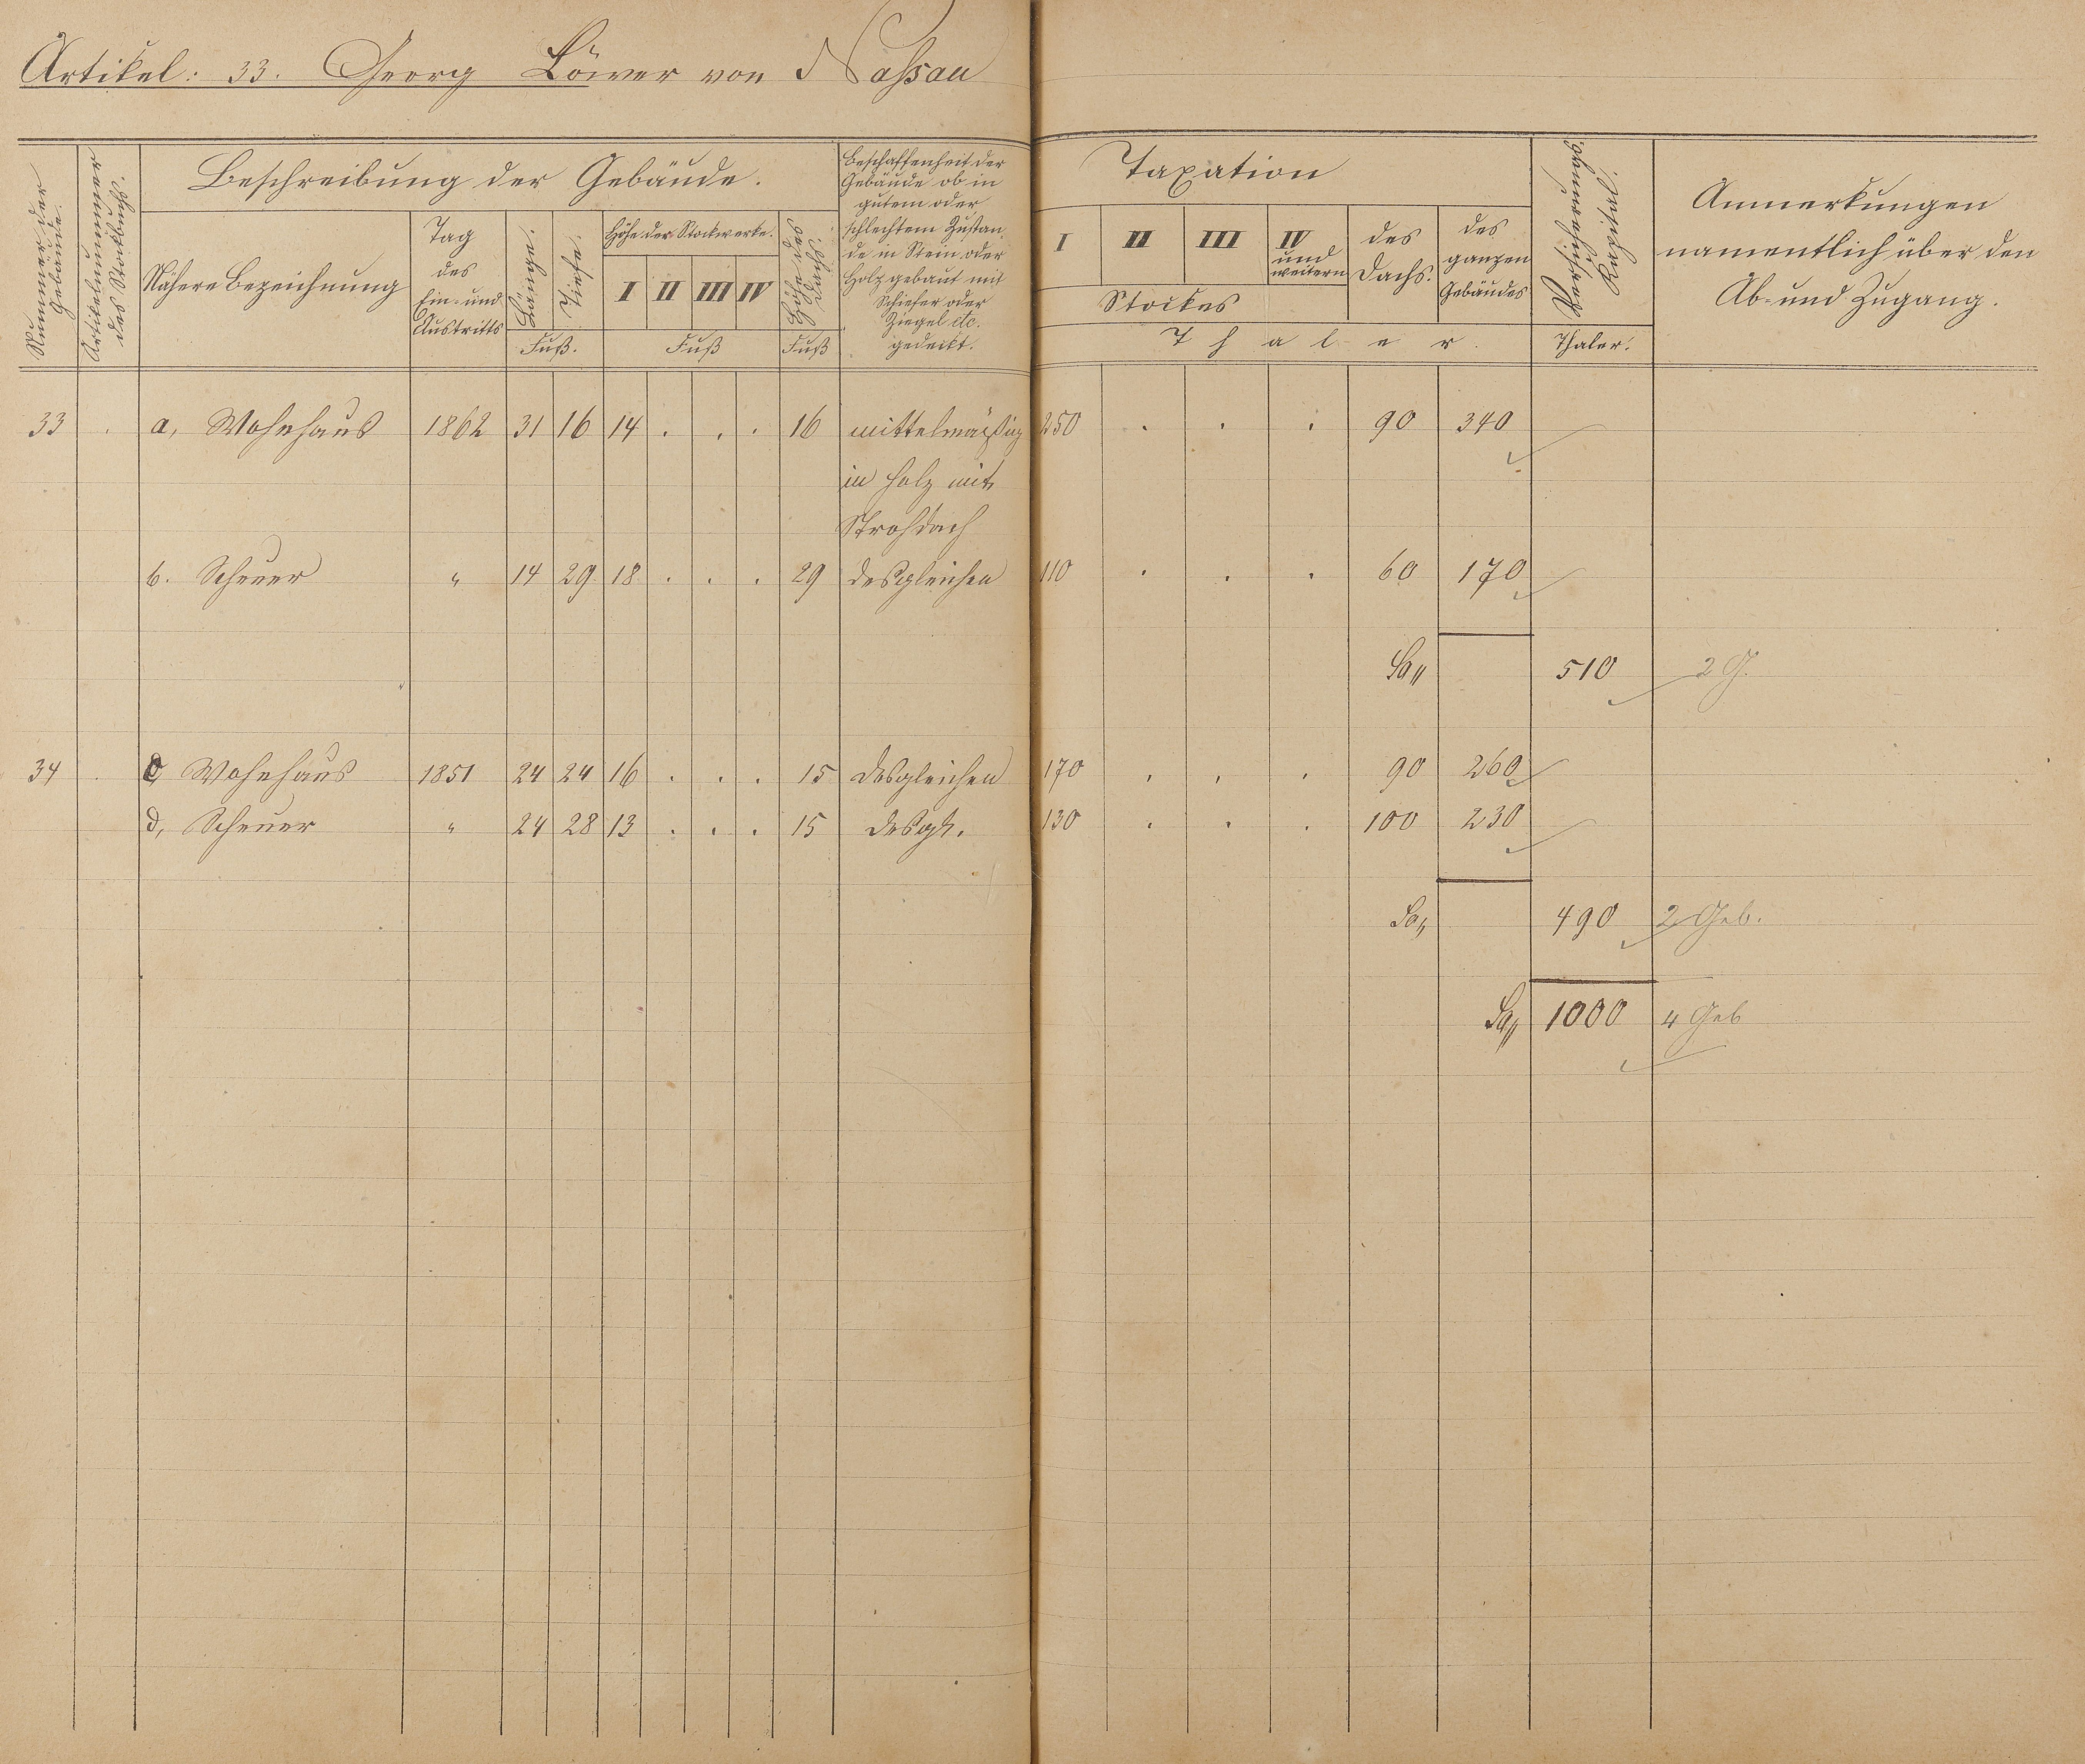 Artikel: 33. Georg Löwer von Nassau
Nummer der Gebäude.
Artikelnummer des Stockbuchs.
Beschreibung der Gebäude.
Nähere Bezeichnung
Tag des Ein- und Austritts
Länge. Tiefe. Fuß.
Höhe der Stockwerke.
I II III IV
Fuß
Höhe des Dachs
Fuß
Beschaffenheit der
Gebäude ob in
gutem oder
schlechtem Zustan-
de in Stein oder
Holz gebaut mit
Schiefer oder
Ziegel etc.
gedeckt.
Taxation
I II III IV und weitern
Stockes
des Dachs.
des ganzen Gebäudes
Thaler.
Versicherungs Kapital.
Thaler.
Anmerkungen
namentlich über den
Ab- und Zugang.
33 . a, Wohnhaus 1862 31 16 14 . . . 16 mittelmäßig 250 . . . 90 340
in Holz mit
Strohdach
b. Scheuer " 14 29 18 . . . 29 desgleichen 110 . . . 60 170
Sa 510 2 G.
34 . c Wohnhaus 1851 24 24 16 . . . 15 desgleichen 170 . . . 90 260
d, Scheuer " 24 28 13 . . . 15 desgl. 130 . . . 100 230
Sa 490 2 Geb.
Sa 1000 4 Geb